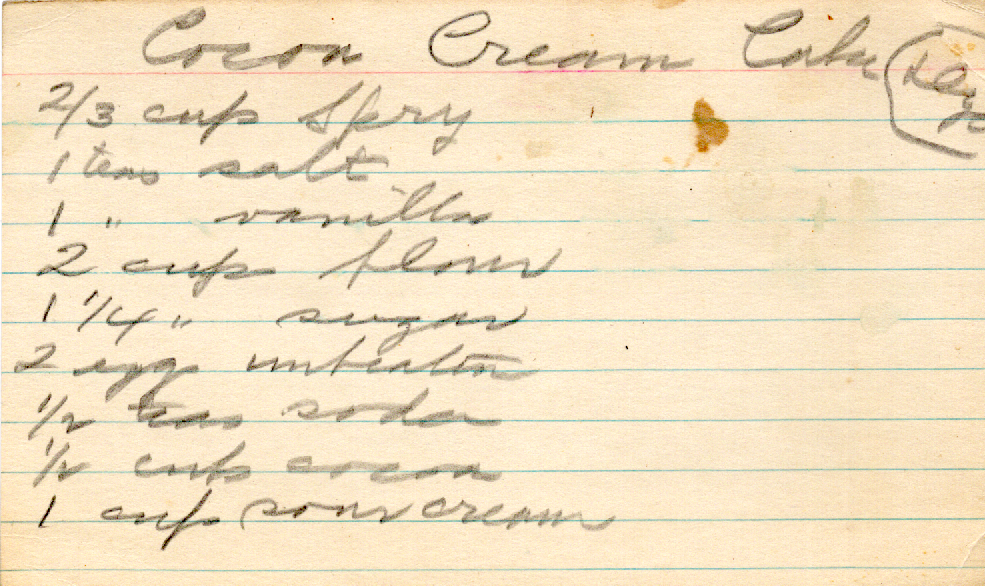 Cocoa Cream Cake
2/3 cup Spry
1 teas salt
1 " vanilla
2 cups flour
1 1/4 " sugar
2 eggs unbeaten
1/2 teas soda
1/2 cup cocoa
1 cup sour cream